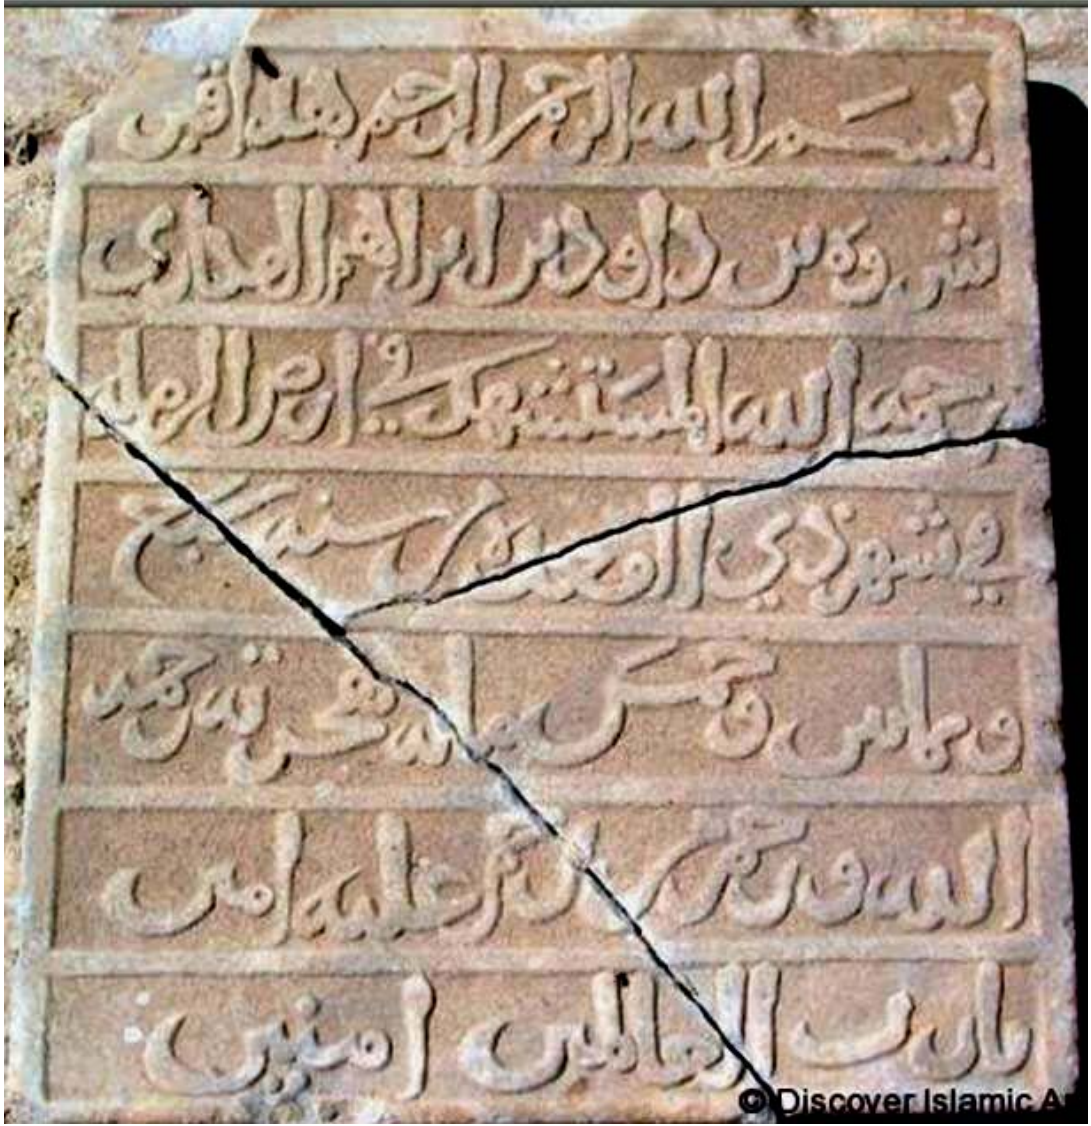 بسم الله الرحمن الرحيم هذا قبر
شروه بن داود بن ابراهيم الهكاري
رحمه الله المستشهد في ارض الرمله
في شهر ذي القعده من سنه سبع
وثمانين وخمس مايه تحن برحمه
الله ورحم من ترحم عليه امين
يا رب العالمين امين
© Discover Islamic A